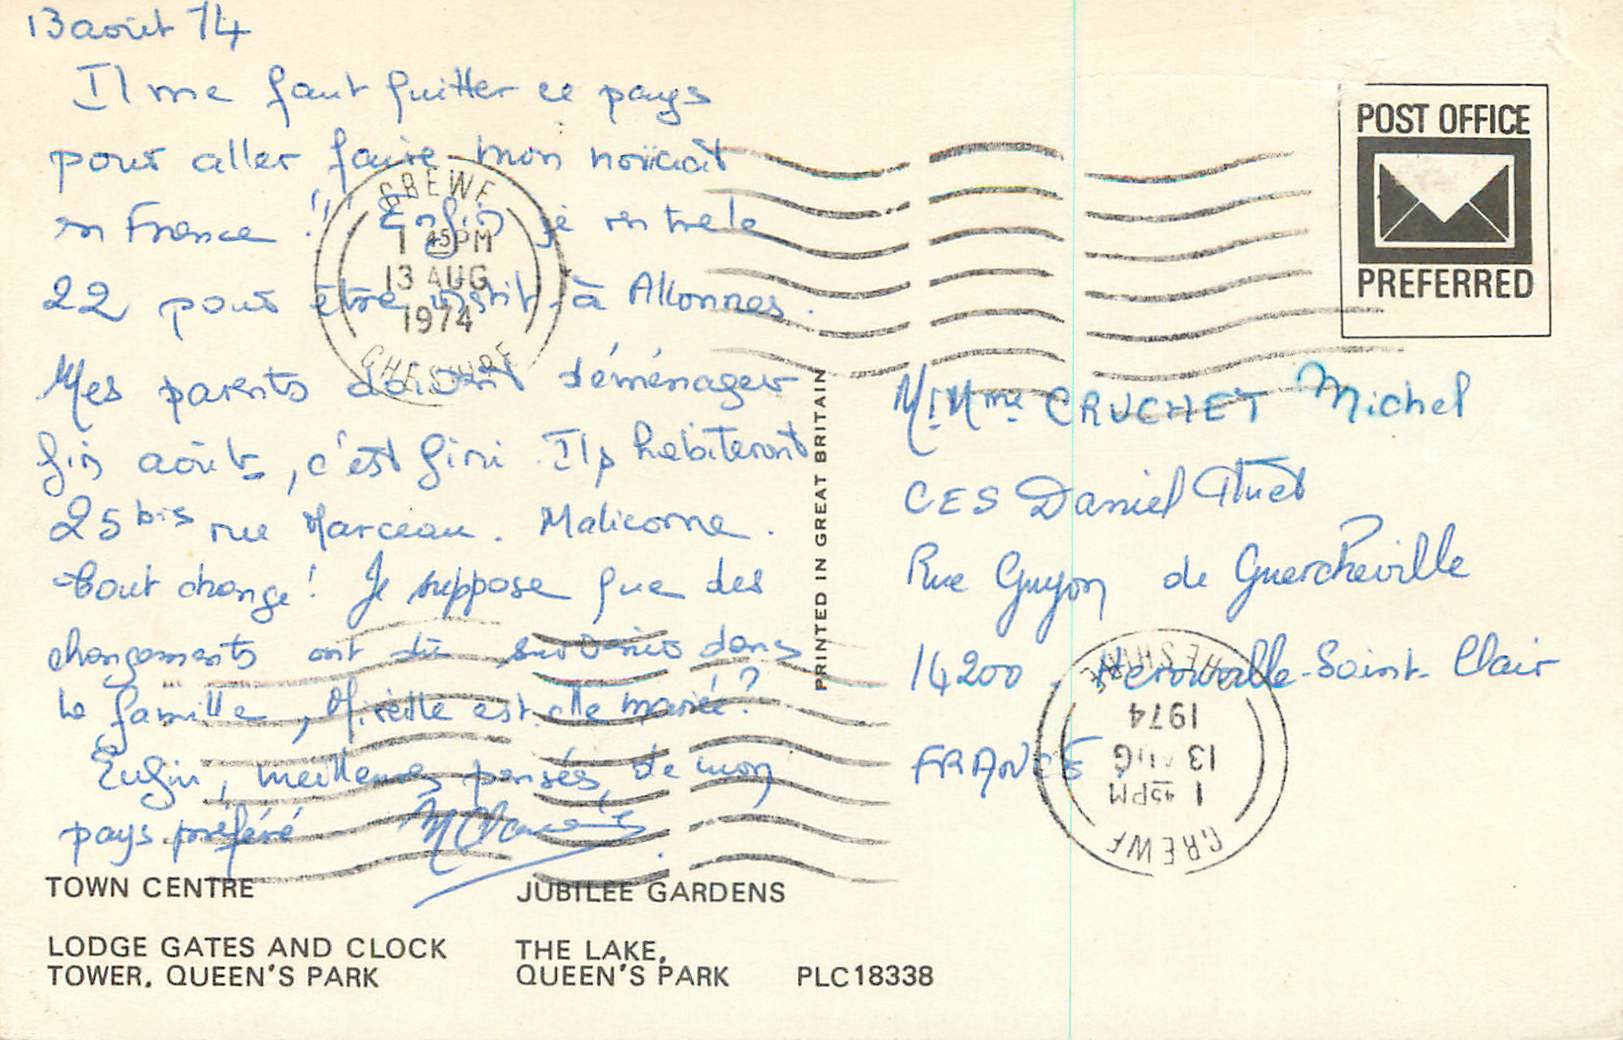 13 août 74
Il me faut quitter ce pays
pour aller faire mon noviciat
en France !! Enfin je rentre le
22 pour être instit. à Allonnes.
Mes parents doivent déménager
fin août, c'est fini. Ils habiteront
25 bis rue Marceau. Malicorne.
Tout change ! Je suppose que des
changements ont dû survenir dans
la famille, Mireille est-elle mariée ?
Enfin, meilleures pensées, de mon
pays préféré
TOWN CENTRE
LODGE GATES AND CLOCK
TOWER, QUEEN'S PARK
JUBILEE GARDENS
THE LAKE,
QUEEN'S PARK
PLC18338
PRINTED IN GREAT BRITAIN
POST OFFICE
PREFERRED
M. Mme CRUCHET Michel
CES Daniel Huet
Rue Guyon de Guercheville
14200 Herouville-Saint-Clair
FRANCE
CREWE
1 45PM
13 AUG
1974
CHESHIRE
CREWE
1 45PM
13 AUG
1974
CHESHIRE